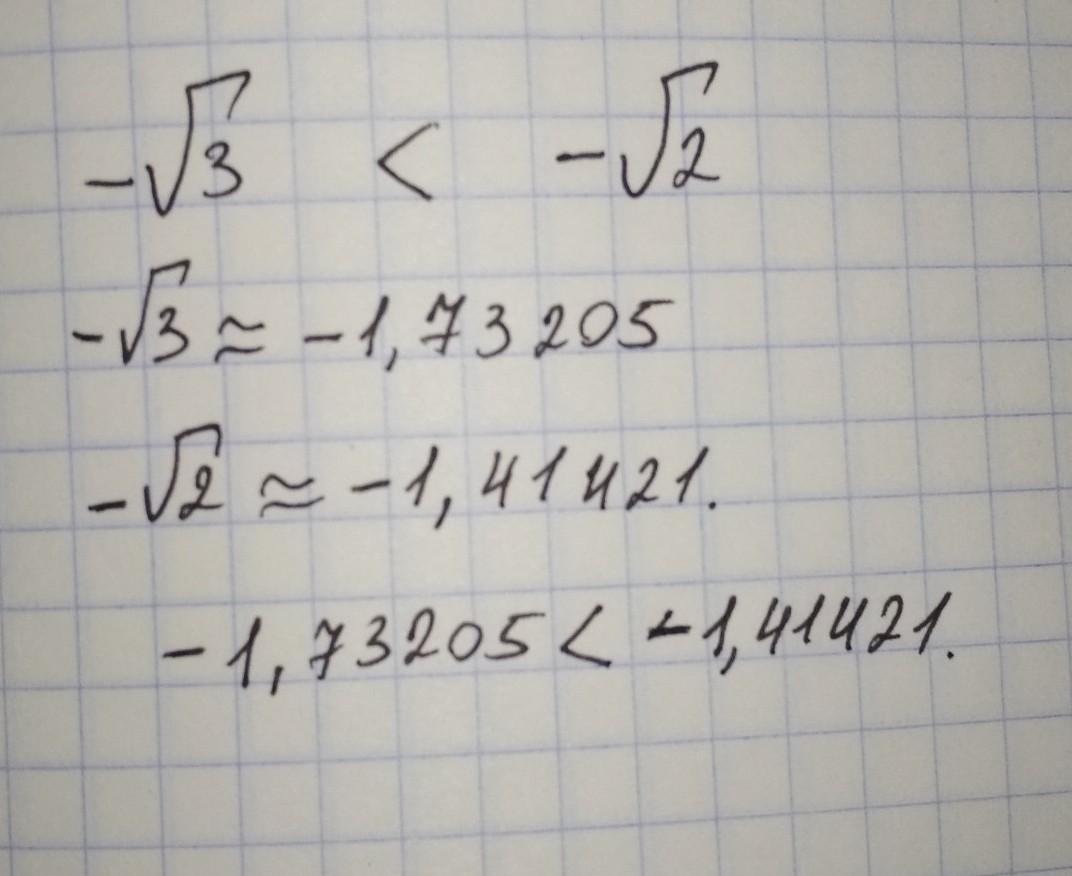 -√3 < -√2
-√3 ≈ -1,73205
-√2 ≈ -1,41421.
-1,73205 < -1,41421.